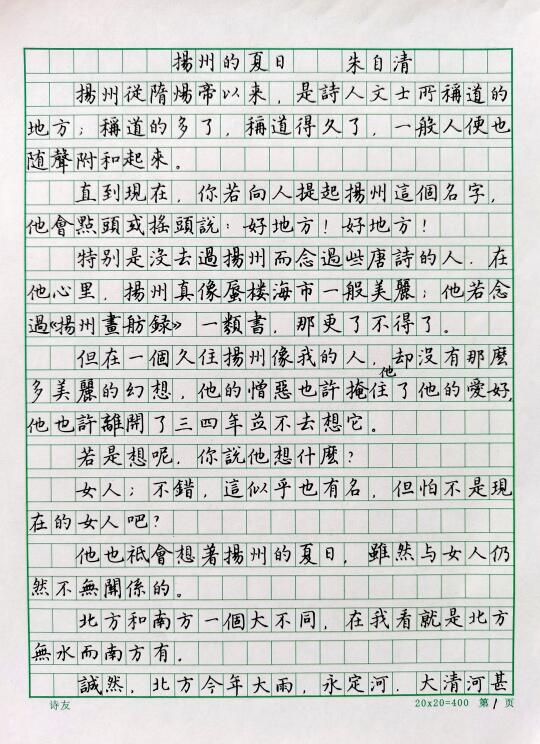 揚州的夏日 朱自清
揚州從隋煬帝以來，是詩人文士所稱道的
地方；稱道的多了，稱道得久了，一般人便也
随聲附和起來。
直到現在，你若向人提起揚州這個名字，
他會點頭或搖頭說：好地方！好地方！
特别是沒去過揚州而念過些唐詩的人，在
他心里，揚州真像蜃楼海市一般美麗；他若念
過《揚州畫舫録》一類書，那更了不得了。
但在一個久住揚州像我的人，他却沒有那麽
多美麗的幻想，他的憎惡也許掩住了他的愛好，
他也許離開了三四年並不去想它。
若是想呢，你說他想什麽？
女人；不錯，這似乎也有名，但怕不是現
在的女人吧？
他也祗會想著揚州的夏日，雖然与女人仍
然不無關係的。
北方和南方一個大不同，在我看就是北方
無水而南方有。
誠然，北方今年大雨，永定河，大清河甚
诗友 20x20=400 第1页